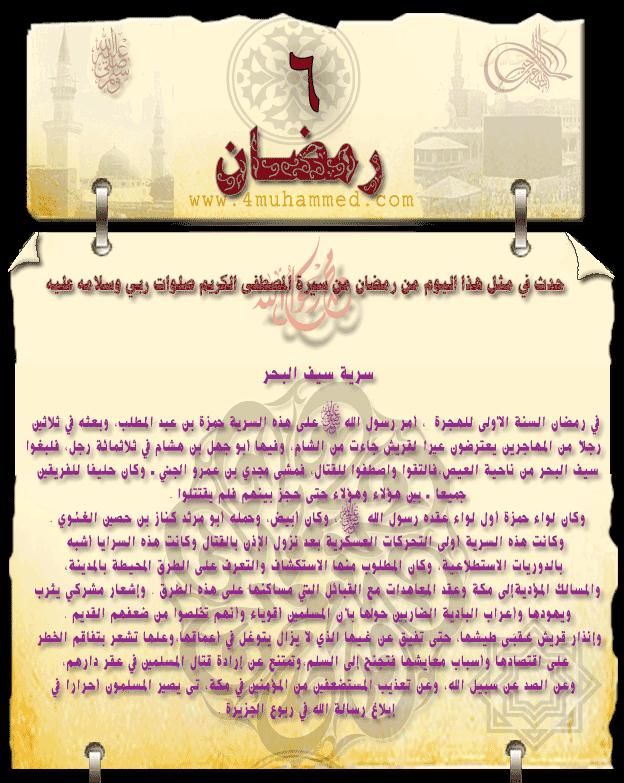 ٦
رمضان
www.4muhammed.com
حدث في مثل هذا اليوم من رمضان من سيرة المصطفى الكريم صلوات ربي وسلامه عليه
سرية سيف البحر
في رمضان السنة الاولى للهجرة ، أمر رسول الله ﷺ على هذه السرية حمزة بن عبد المطلب، وبعثه في ثلاثين
رجلا من المهاجرين يعترضون عيرا لقريش جاءت من الشام، وفيها أبو جهل بن هشام في ثلاثمائة رجل، فلبغوا
سيف البحر من ناحية العيص،فالتقوا واصطفوا للقتال، فمشى مجدي بن عمرو الجني ـ وكان حليفا للفريقين
جميعا ـ بين هؤلاء وهؤلاء حتى حجز بينهم فلم يقتتلوا .
وكان لواء حمزة أول لواء عقده رسول الله ﷺ، وكان أبيض، وحمله أبو مرثد كناز بن حصين الغنوي .
وكانت هذه السرية أولى التحركات العسكرية بعد نزول الإذن بالقتال وكانت هذه السرايا أشبه
بالدوريات الاستطلاعية، وكان المطلوب منها الاستكشاف والتعرف على الطرق المحيطة بالمدينة،
والمسالك المؤديةإلى مكة وعقد المعاهدات مع القبائل التي مساكنها على هذه الطرق . وإشعار مشركي يثرب
ويهودها وأعراب البادية الضاربين حولها بأن المسلمين أقوياء وأنهم تخلصوا من ضعفهم القديم .
وإنذار قريش عقبى طيشها، حتى تفيق عن غيها الذي لا يزال يتوغل في أعماقها،وعلها تشعر بتفاقم الخطر
على اقتصادها وأسباب معايشها فتجنح إلى السلم،وتمتنع عن إرادة قتال المسلمين في عقر دارهم،
وعن الصد عن سبيل الله، وعن تعذيب المستضعفين من المؤمنين في مكة، تى يصير المسلمون أحرارا في
إبلاغ رسالة الله في ربوع الجزيرة.